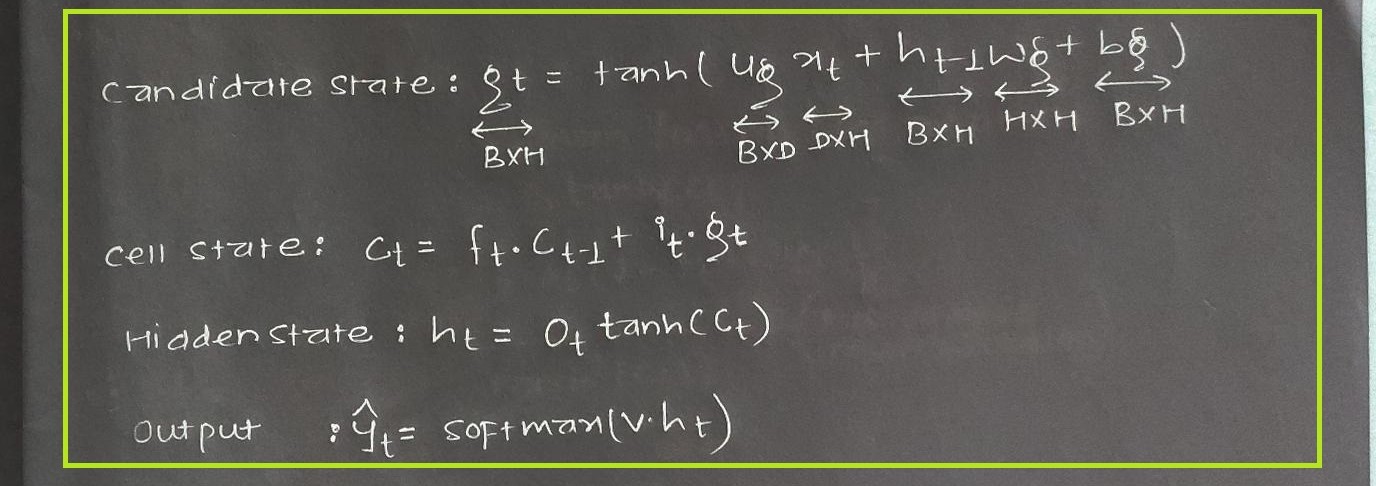 candidate state : gt = tanh ( ug xt + ht-1 wg + bg )
BXH BXD DXH BXH HXH BXH
cell state : Ct = ft . Ct-1 + it . gt
Hidden state : ht = Ot tanh (Ct)
output : ŷt = softmax(v.ht)